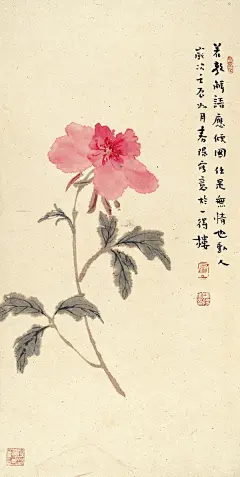 若教解語應傾國任是無情也動人
歲次壬辰九月
寫意於一得樓